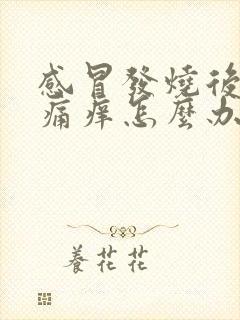 感冒發燒後
痛痒怎麼办
養花花